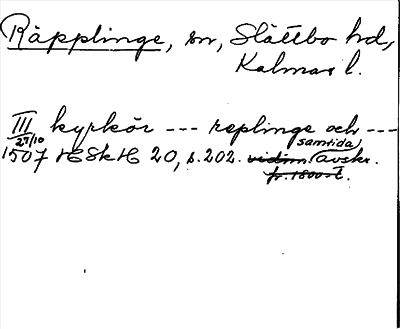 Räpplinge, sn, Slättbo hd,
Kalmar l.
III kyrkör --- replinge och ---
27/10
1507 HSkH 20, s. 202. vidim (samtida) avskr.
fr. 1800-t.